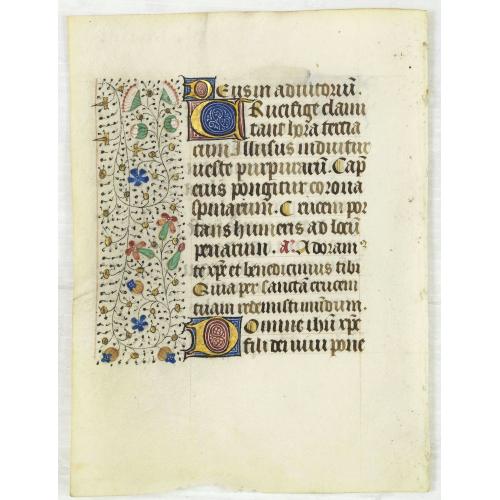 Deus in adiutoriū.
Crucifige clami
tant hora tercia
rum Illusus induitur
ueste purpurarū. Cap̄
eius pongitur corona
spinarum. Crucem por
tans humeris ad locū
penarum. Adoram
te xp̄e et benedicimus tibi
Quia per sanctā crucem
tuam redemisti mūdum.
Domine ihū xp̄e
fili dei uiui pone